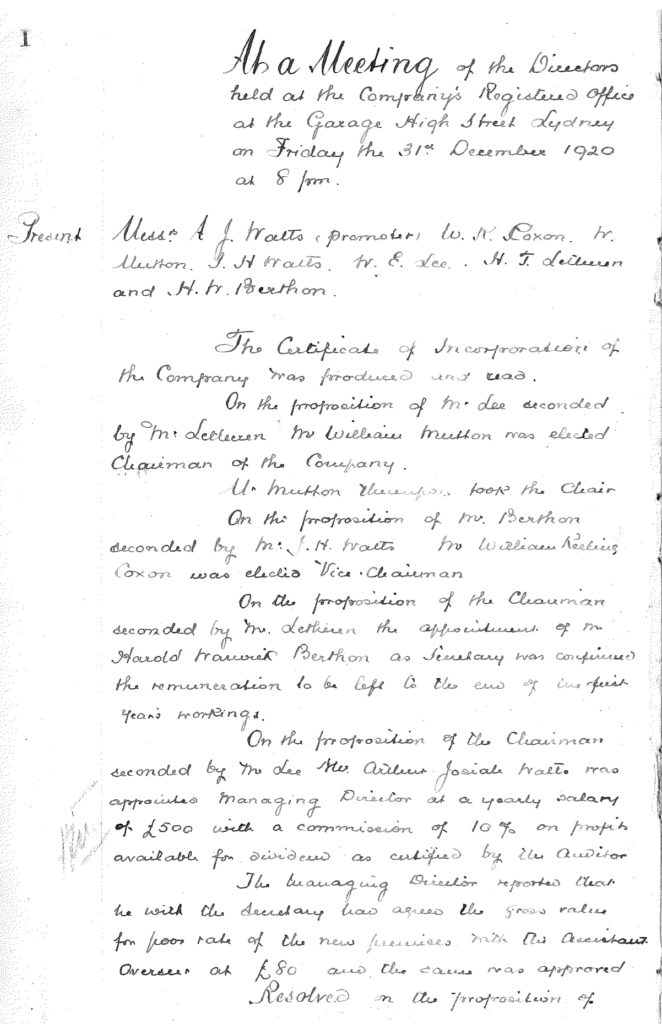 1
At a Meeting of the Directors
held at the Company's Registered Office
at the Garage High Street Lydney
on Friday the 31st December 1920
at 8 pm.
Present Messrs A J. Watts (promoter) W. K. Coxon. W.
Mutton. J. H Watts. W. E. Lee. H. T. Letheren
and H. W. Berthon.
The Certificate of Incorporation of
the Company was produced and read.
On the proposition of Mr Lee seconded
by Mr Letheren Mr William Mutton was elected
Chairman of the Company.
Mr Mutton thereupon took the Chair
On the proposition of Mr. Berthon
seconded by Mr. J. H. Watts Mr William Keeling
Coxon was elected Vice-Chairman
On the proposition of the Chairman
seconded by Mr. Letheren the appointment of Mr
Harold Warwick Berthon as Secretary was confirmed
the remuneration to be left to the end of the first
years workings.
On the proposition of the Chairman
seconded by Mr Lee Mr. Arthur Josiah Watts was
appointed Managing Director at a yearly salary
of £500 with a commission of 10% on profits
available for dividend as certified by the Auditor
The Managing Director reported that
he with the Secretary had agreed the gross value
for poor rate of the new premises with the Assistant
Overseer at £80 and the same was approved
Resolved on the proposition of